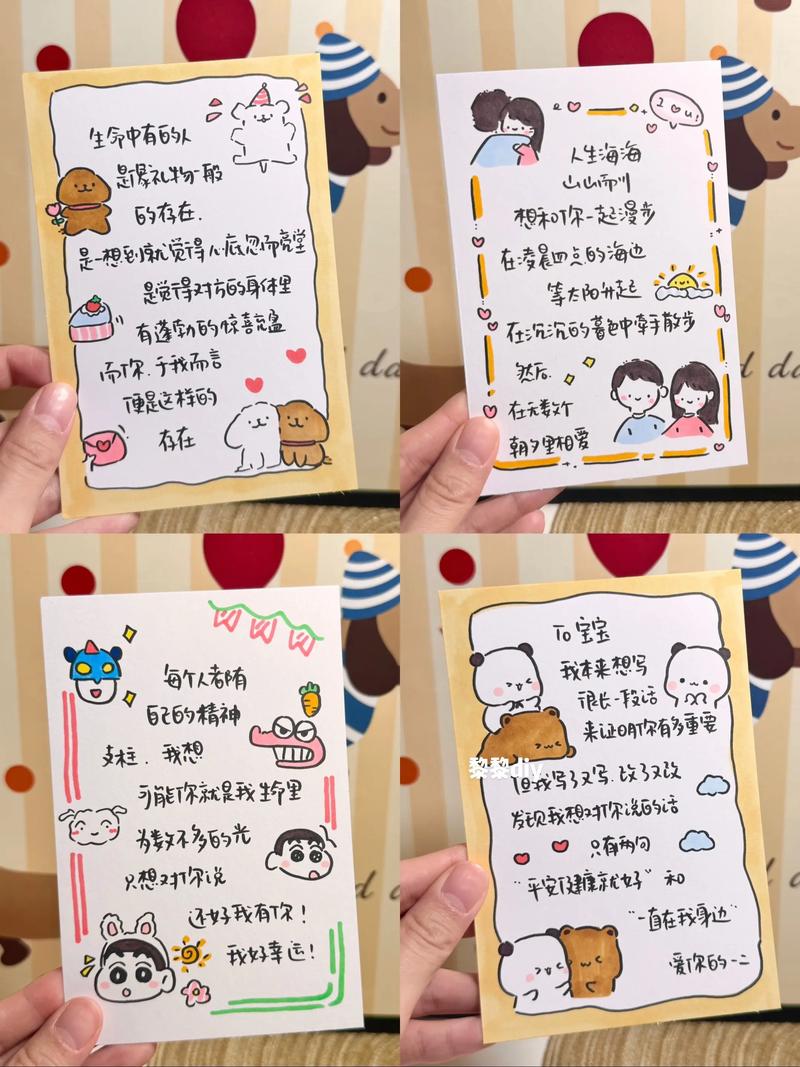 生命中有的人
是像礼物一般
的存在.
是一想到就觉得心底忽而亮堂
是觉得对方的身体里
有蓬勃的惊喜充盈
而你.于我而言
便是这样的
存在
I Love u!
人生海海
山山而川
想和你一起漫步
在凌晨四点的海边
等太阳升起
在沉沉的暮色中牵手散步
然后.
在无数个
朝夕里相爱
每个人都有
自己的精神
支柱.我想
可能你就是我生命里
为数不多的光
只想对你说
还好我有你!
我好幸运!
To 宝宝
我本来想写
很长一段话
来证明你有多重要
但我写了又写.改了又改
发现我想对你说的话
只有两句
"平安健康就好"和
"一直在我身边"
爱你的一二
黎黎diy